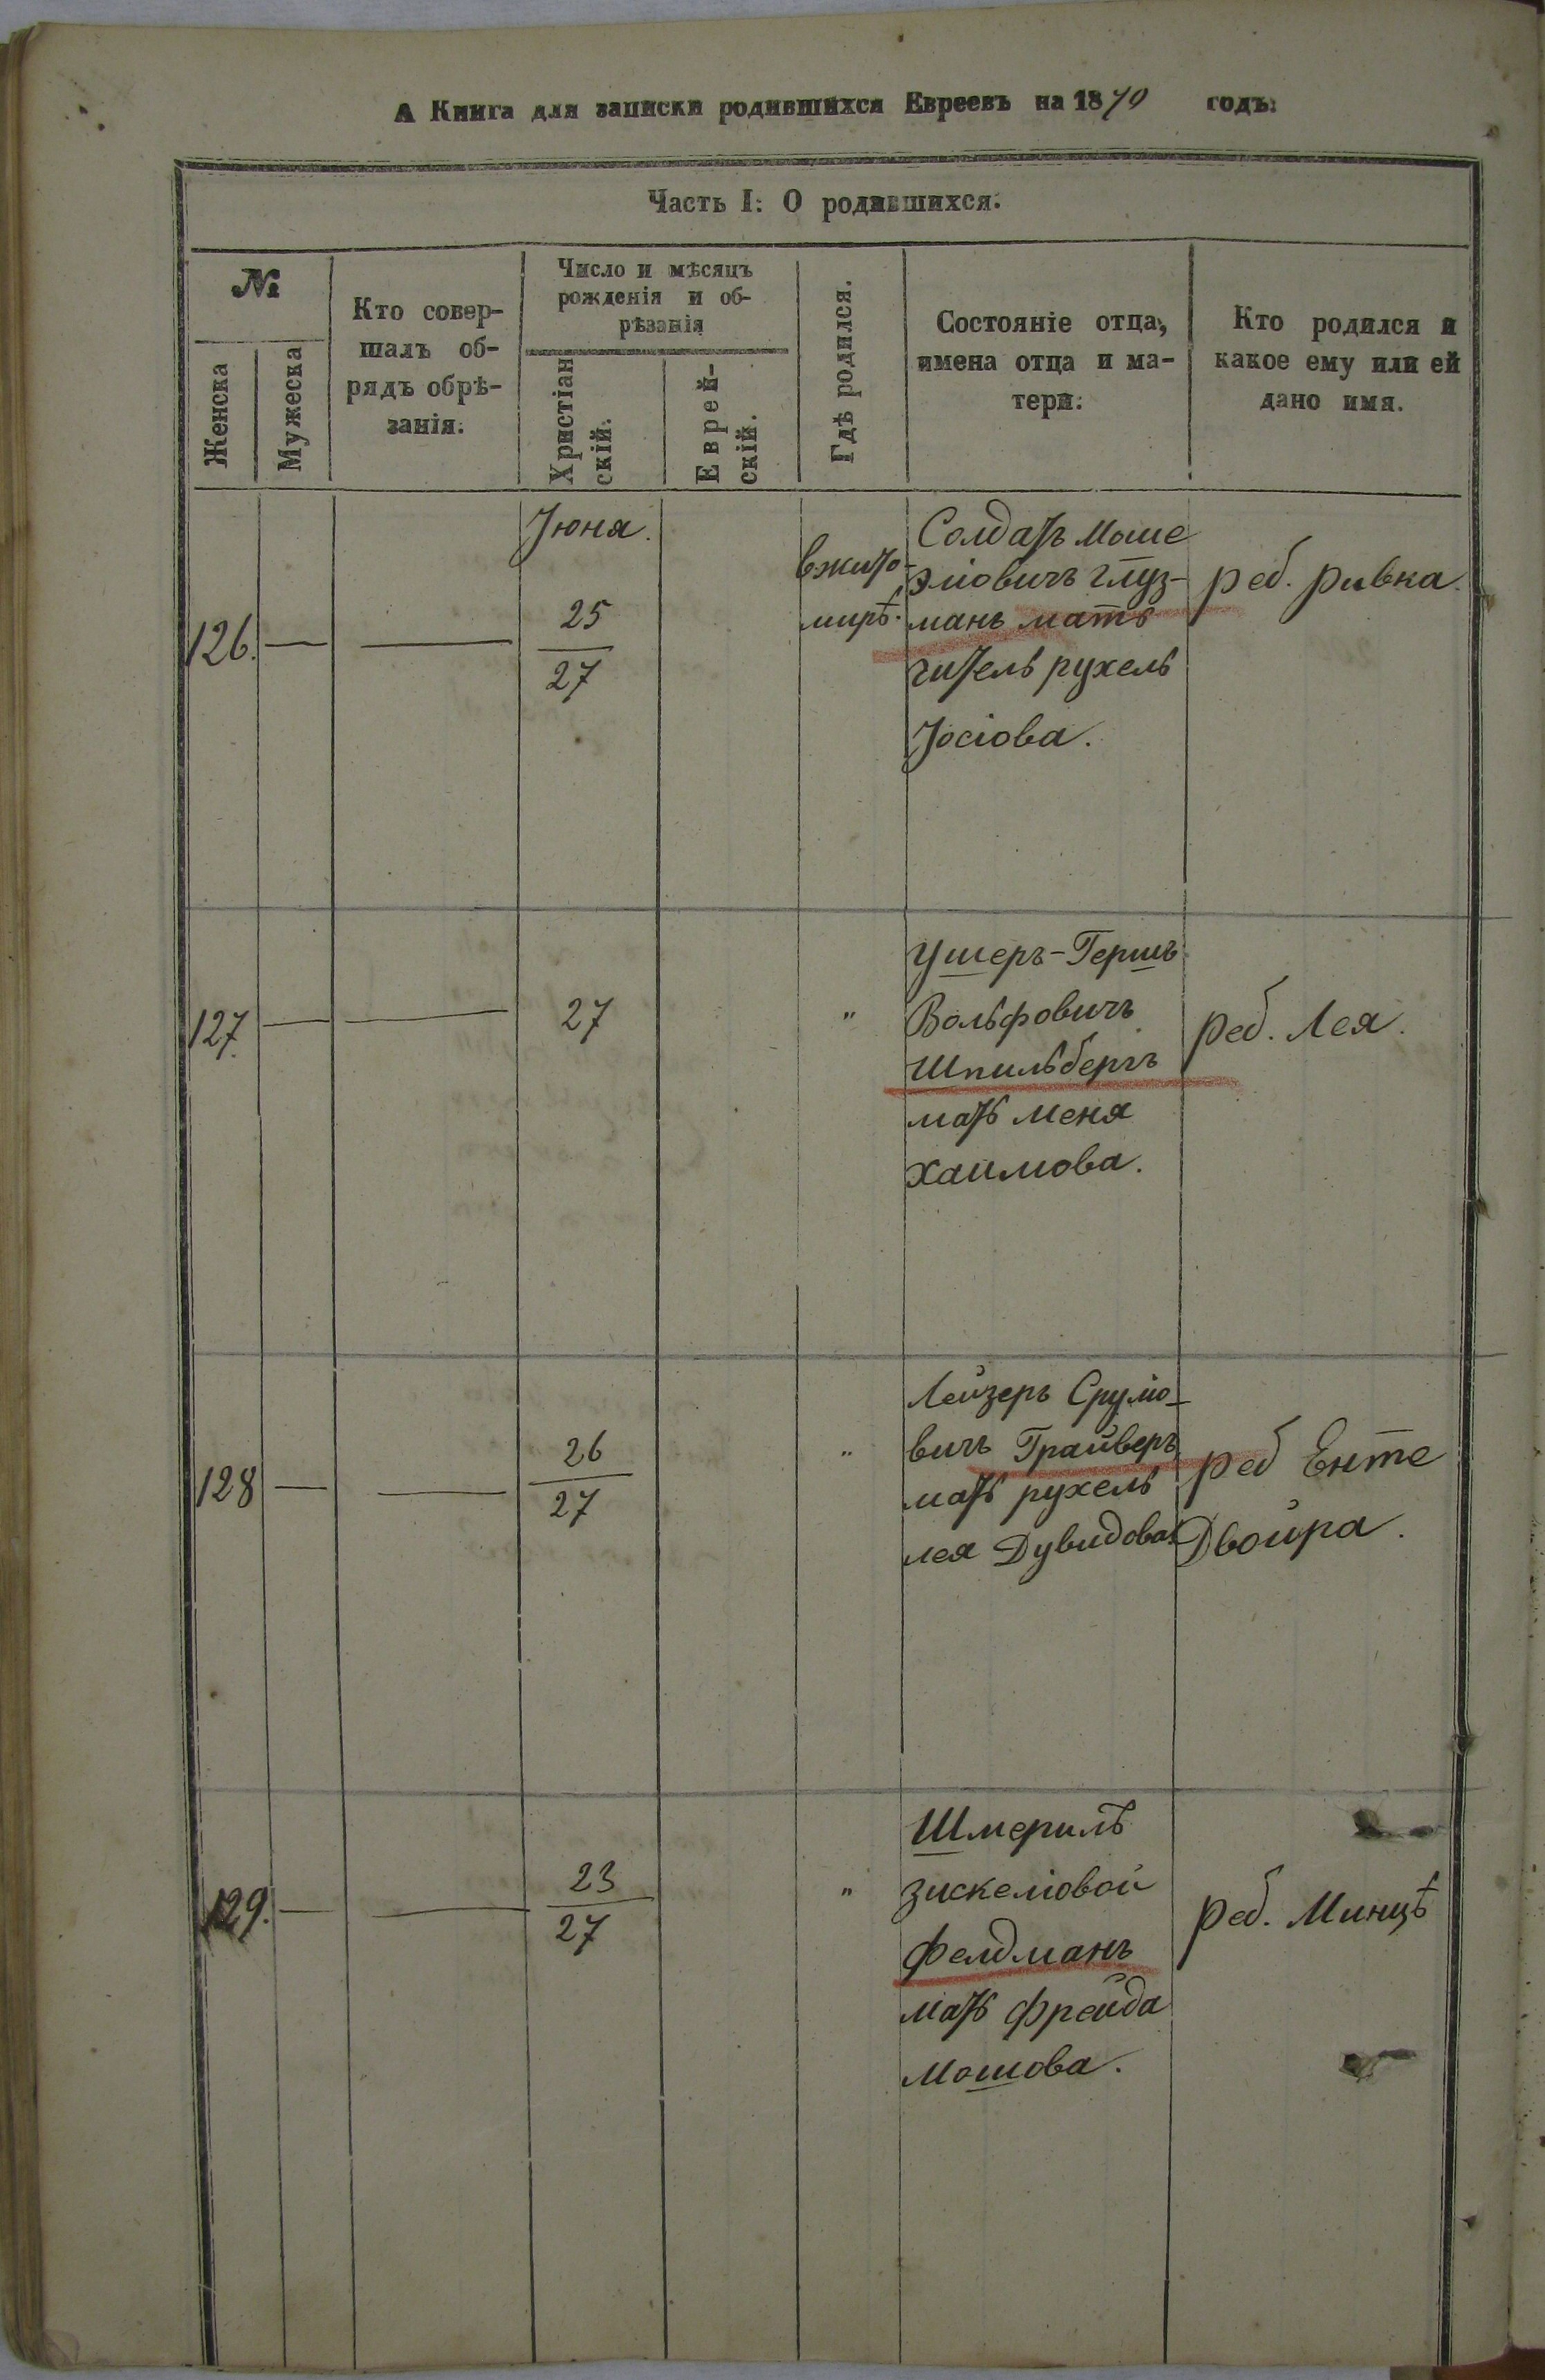 А Книга для записки родившихся Евреевъ на 1870 годъ:
Часть I: О родившихся.
№
Женска
Мужеска
Кто совер-
шалъ об-
рядъ обрѣ-
занія.
Число и мѣсяцъ
рожденія и об-
рѣзанія
Христіан
скій.
Еврей-
скій.
Гдѣ родился.
Состояніе отца,
имена отца и ма-
тери.
Кто родился и
какое ему или ей
дано имя.
126. — —
Іюня.
25
27
вжито-
мирѣ.
Солдатъ Моше
Эліовичъ Глуз-
манъ мать
Читель рухель
Іосіова.
реб. ривка.
127. — —
27
"
Ушеръ-Гершъ
Вольфовичъ
Шпильбергъ
мать Меня
Хаимова.
реб. Лея.
128 — —
26
27
"
Лейзеръ Сруліо-
вичъ Грайверъ
мать рухель
лея Дувидова
реб Енте
Двойра.
129. — —
23
27
"
Шмериль
Зискеліовой
Фелдманъ
мать Фрейда
Мошова.
реб. Минцѣ